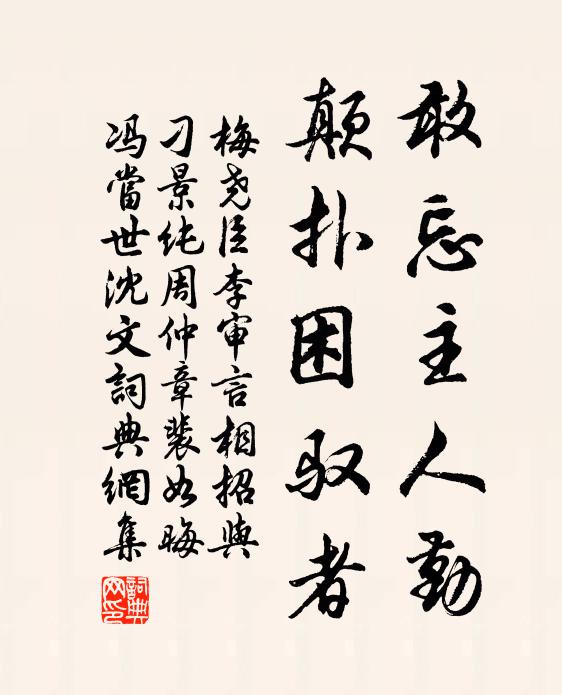 敢忘主人勤
颠扑困驭者
梅尧臣李审言相招与
刁景纯周仲章裴如晦
冯當世沈文詞典網集
詞典
网印